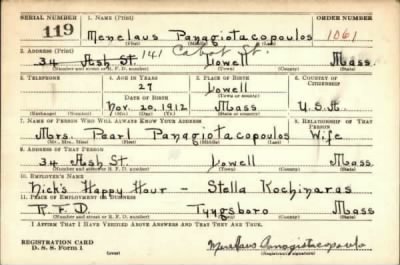 SERIAL NUMBER 1. NAME (Print) ORDER NUMBER
119 Menelaus Panagiotacopoulos 1061
(First) (Middle) (Last)
2. ADDRESS (Print) 141 Cabot St.
34 Ash St. Lowell Mass
(Number and street or R. F. D. number) (Town) (County) (State)
3. TELEPHONE 4. AGE IN YEARS 5. PLACE OF BIRTH 6. COUNTRY OF CITIZENSHIP
27 Lowell
(Town or county)
DATE OF BIRTH
Nov. 20, 1912 Mass U.S.A.
(Exchange) (Number) (Mo.) (Day) (Yr.) (State or country)
7. NAME OF PERSON WHO WILL ALWAYS KNOW YOUR ADDRESS 8. RELATIONSHIP OF THAT PERSON
Mrs. Pearl Panagiotacopoulos Wife
(Mr., Mrs., Miss) (First) (Middle) (Last)
9. ADDRESS OF THAT PERSON
34 Ash St. Lowell Mass
(Number and street or R. F. D. number) (Town) (County) (State)
10. EMPLOYER'S NAME
Nick's Happy Hour - Stella Kochinaras
11. PLACE OF EMPLOYMENT OR BUSINESS
R.F.D. Tyngsboro Mass
(Number and street or R. F. D. number) (Town) (County) (State)
I AFFIRM THAT I HAVE VERIFIED ABOVE ANSWERS AND THAT THEY ARE TRUE.
REGISTRATION CARD
D. S. S. Form 1 (over) Menelaus Panagiotacopoulos
(Registrant's signature)